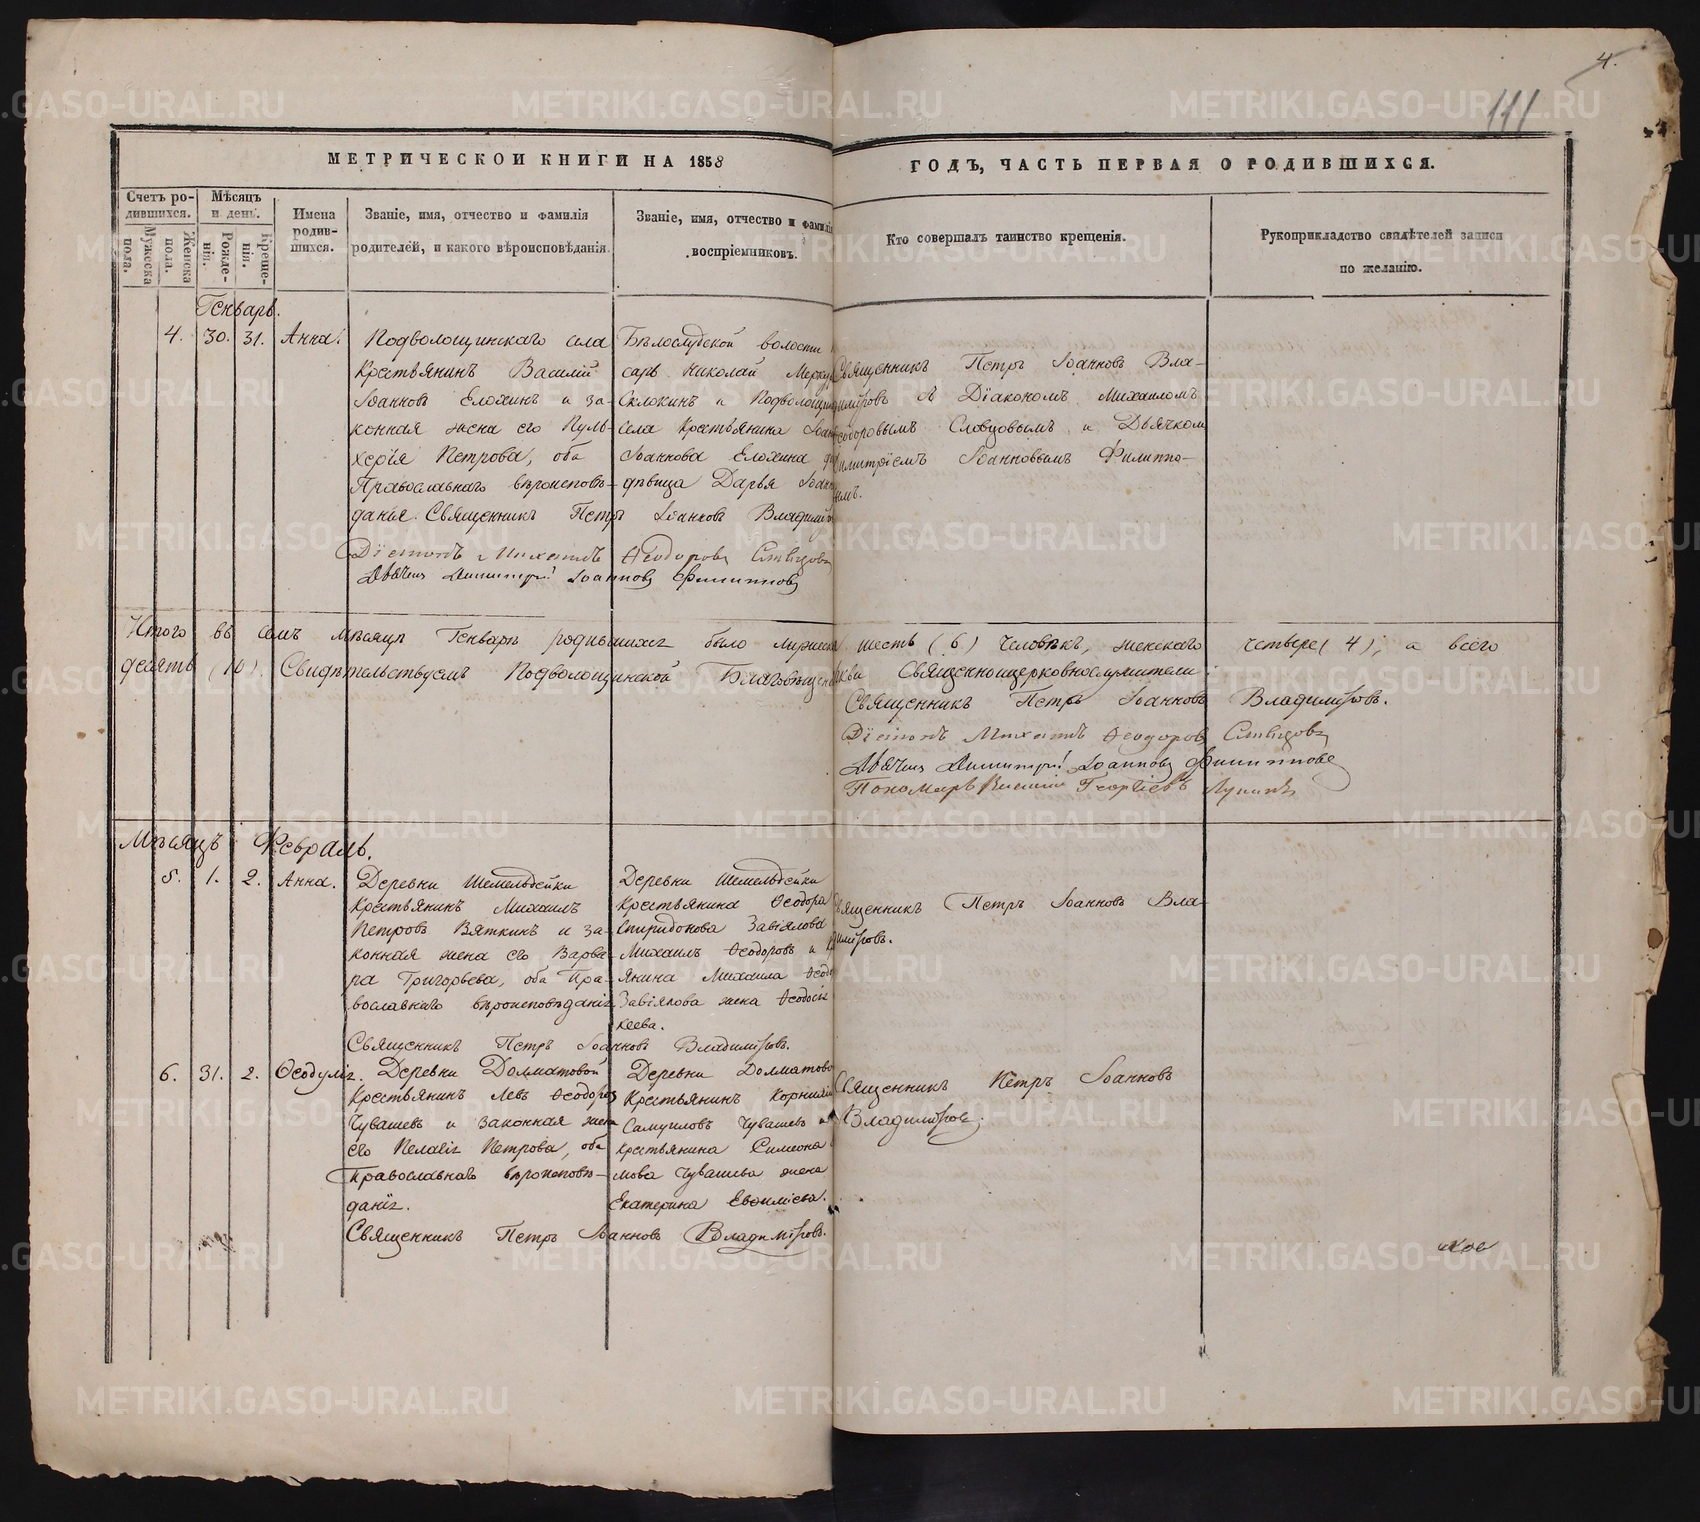 4.
111
МЕТРИЧЕСКОЙ КНИГИ НА 1858
ГОДЪ, ЧАСТЬ ПЕРВАЯ О РОДИВШИХСЯ.
Счетъ ро-
дившихся.
Мужеска
пола.
Женска
пола.
Мѣсяцъ
и день.
Рожде-
нія.
Креще-
нія.
Имена
родив-
шихся.
Званіе, имя, отчество и фамилія
родителей, и какого вѣроисповѣданія.
Званіе, имя, отчество и фамилія
воспріемниковъ.
Кто совершалъ таинство крещенія.
Рукоприкладство свидѣтелей записи
по желанію.
Генварь.
4. 30. 31. Анна.
Подволошинскаго села
Крестьянинъ Василій
Іоанновъ Елохинъ и за-
конная жена его Пуль-
херія Петрова, оба
Православнаго вѣроисповѣ-
данія. Священникъ Петръ Іоанновъ Владимі
Діаконъ Михаилъ Ѳеодоровъ Словцовъ
Дьячекъ Димитрій Іоанновъ Филипповъ
Бѣлослудской волости
сарь Николай Мерку
Склокинъ и Подволошин
села Крестьянина Іоан
Іоаннова Елохина
дѣвица Дарья Іоан
Священникъ Петръ Іоанновъ Вла-
диміровъ съ Діакономъ Михаиломъ
Ѳеодоровымъ Словцовымъ и Дьячком
Димитріемъ Іоанновымъ Филиппо-
вымъ.
Итого въ семъ мѣсяцѣ Генварѣ родившихся было мужеска шесть (6) человѣкъ, женскаго четыре (4), а всего
десять (10). Свидѣтельствуемъ Подволошинской Благовѣщен церкви Священноцерковнослужители:
Священникъ Петръ Іоанновъ Владиміровъ.
Діаконъ Михаилъ Ѳеодоровъ Словцовъ
Дьячекъ Димитрій Іоанновъ Филипповъ
Пономарь Василій Георгіевъ Лукинъ
Мѣсяцъ Февраль.
5. 1. 2. Анна.
Деревни Шемельдейки
Крестьянинъ Михаилъ
Петровъ Вяткинъ и за-
конная жена его Варва-
ра Григорьева, оба Пра-
вославнаго вѣроисповѣданія
Священникъ Петръ Іоанновъ Владиміровъ.
Деревни Шемельдейки
Крестьянина Ѳеодора
Спиридонова Завіялова
Михаилъ Ѳеодоровъ и
янина Михаила Ѳеодо
Завіялова жена Ѳеодосія
кеева.
Священникъ Петръ Іоанновъ Вла-
диміровъ.
6. 31. 2. Ѳеодулія.
Деревни Долматовой
Крестьянинъ Левъ Ѳеодоровъ
Чувашевъ и законная жена
его Пелагія Петрова, оба
Православнаго вѣроисповѣ-
данія.
Священникъ Петръ Іоанновъ Владиміровъ.
Деревни Долматово
Крестьянинъ Корнилій
Самуиловъ Чувашевъ и
Крестьянина Симеона
мова Чувашева жена
Екатерина Евѳиміева.
Священникъ Петръ Іоанновъ
Владиміровъ.